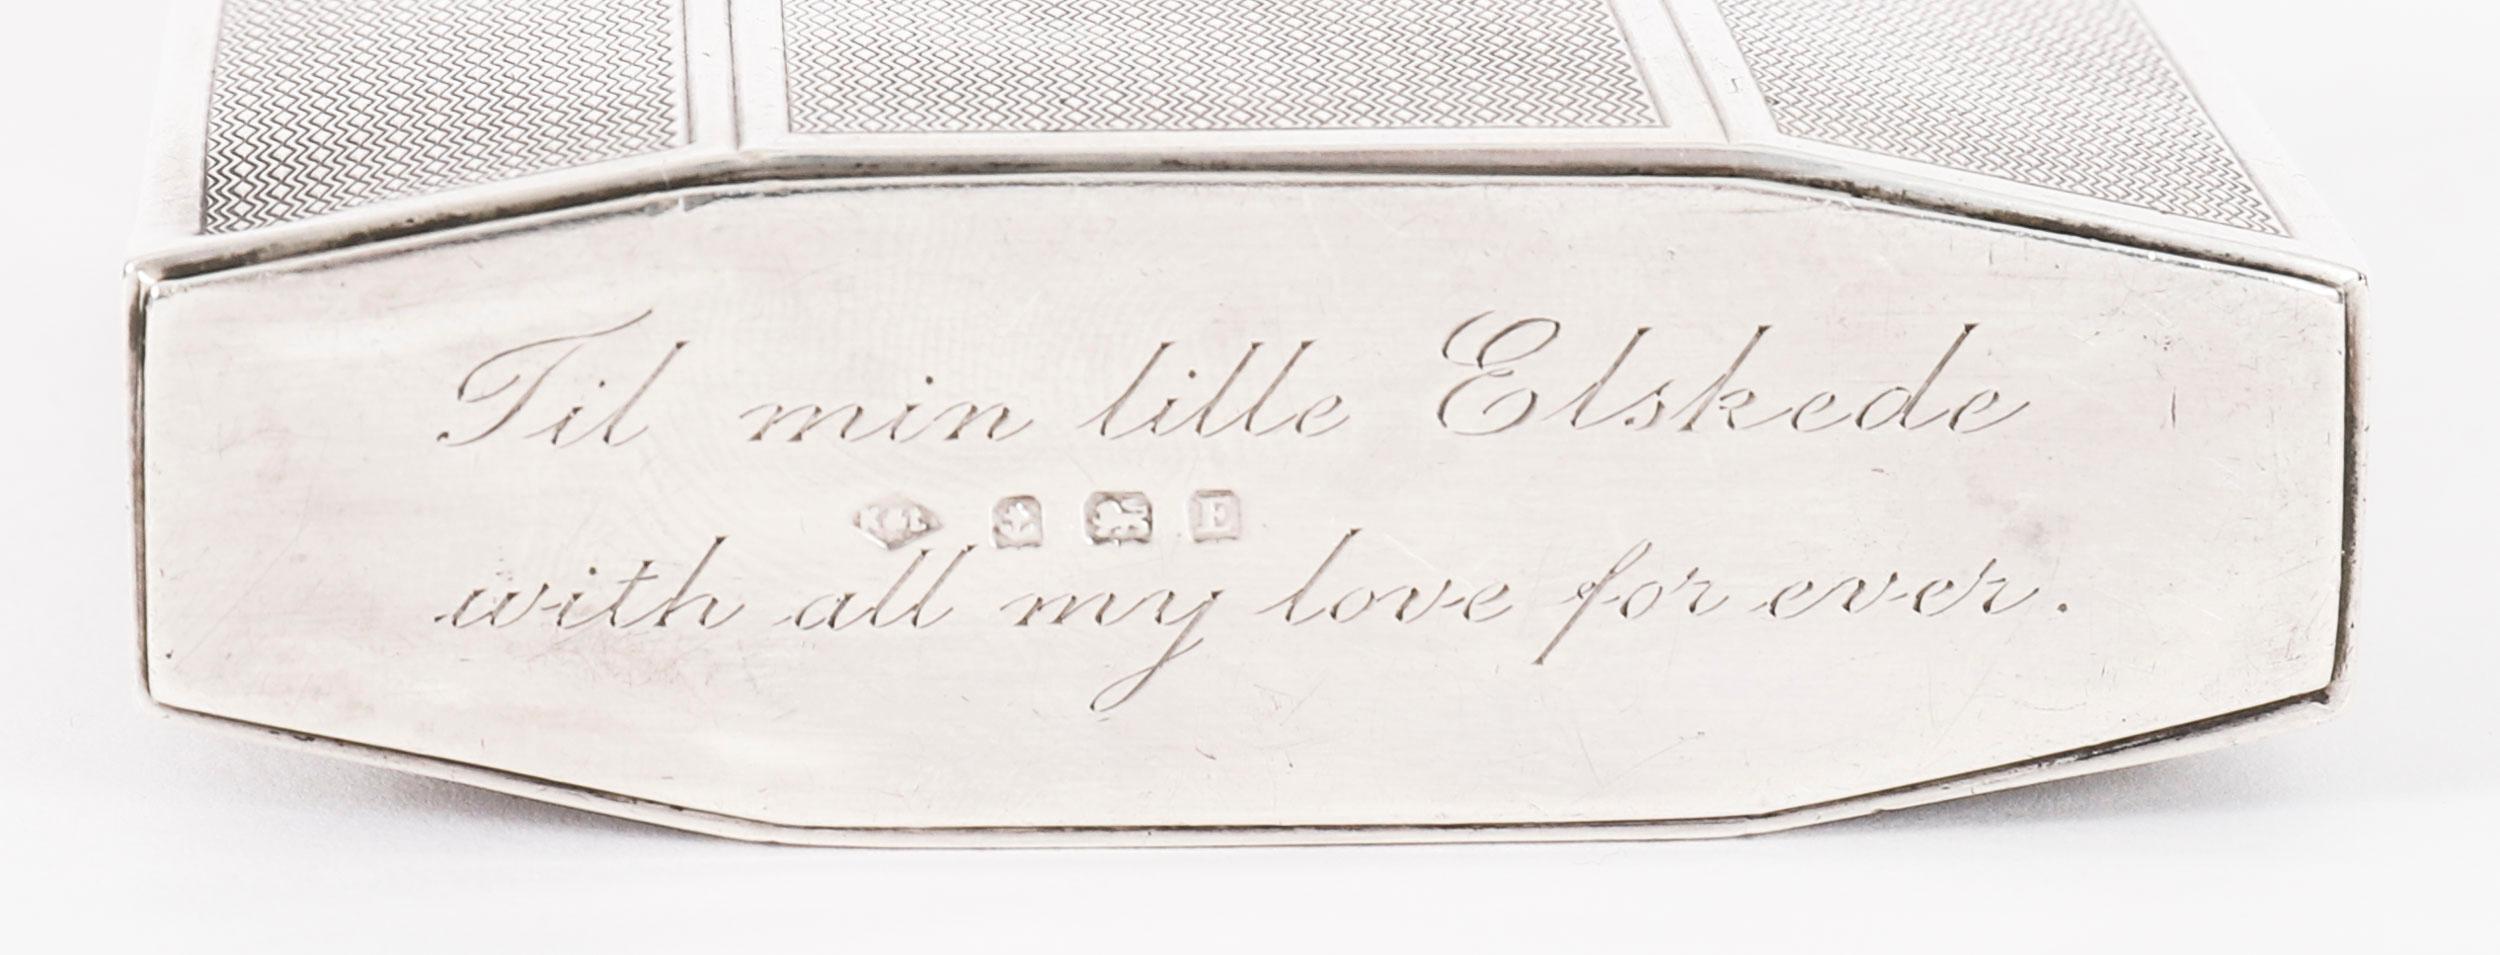 Til min lille Elskede
K&L E
with all my love for ever.